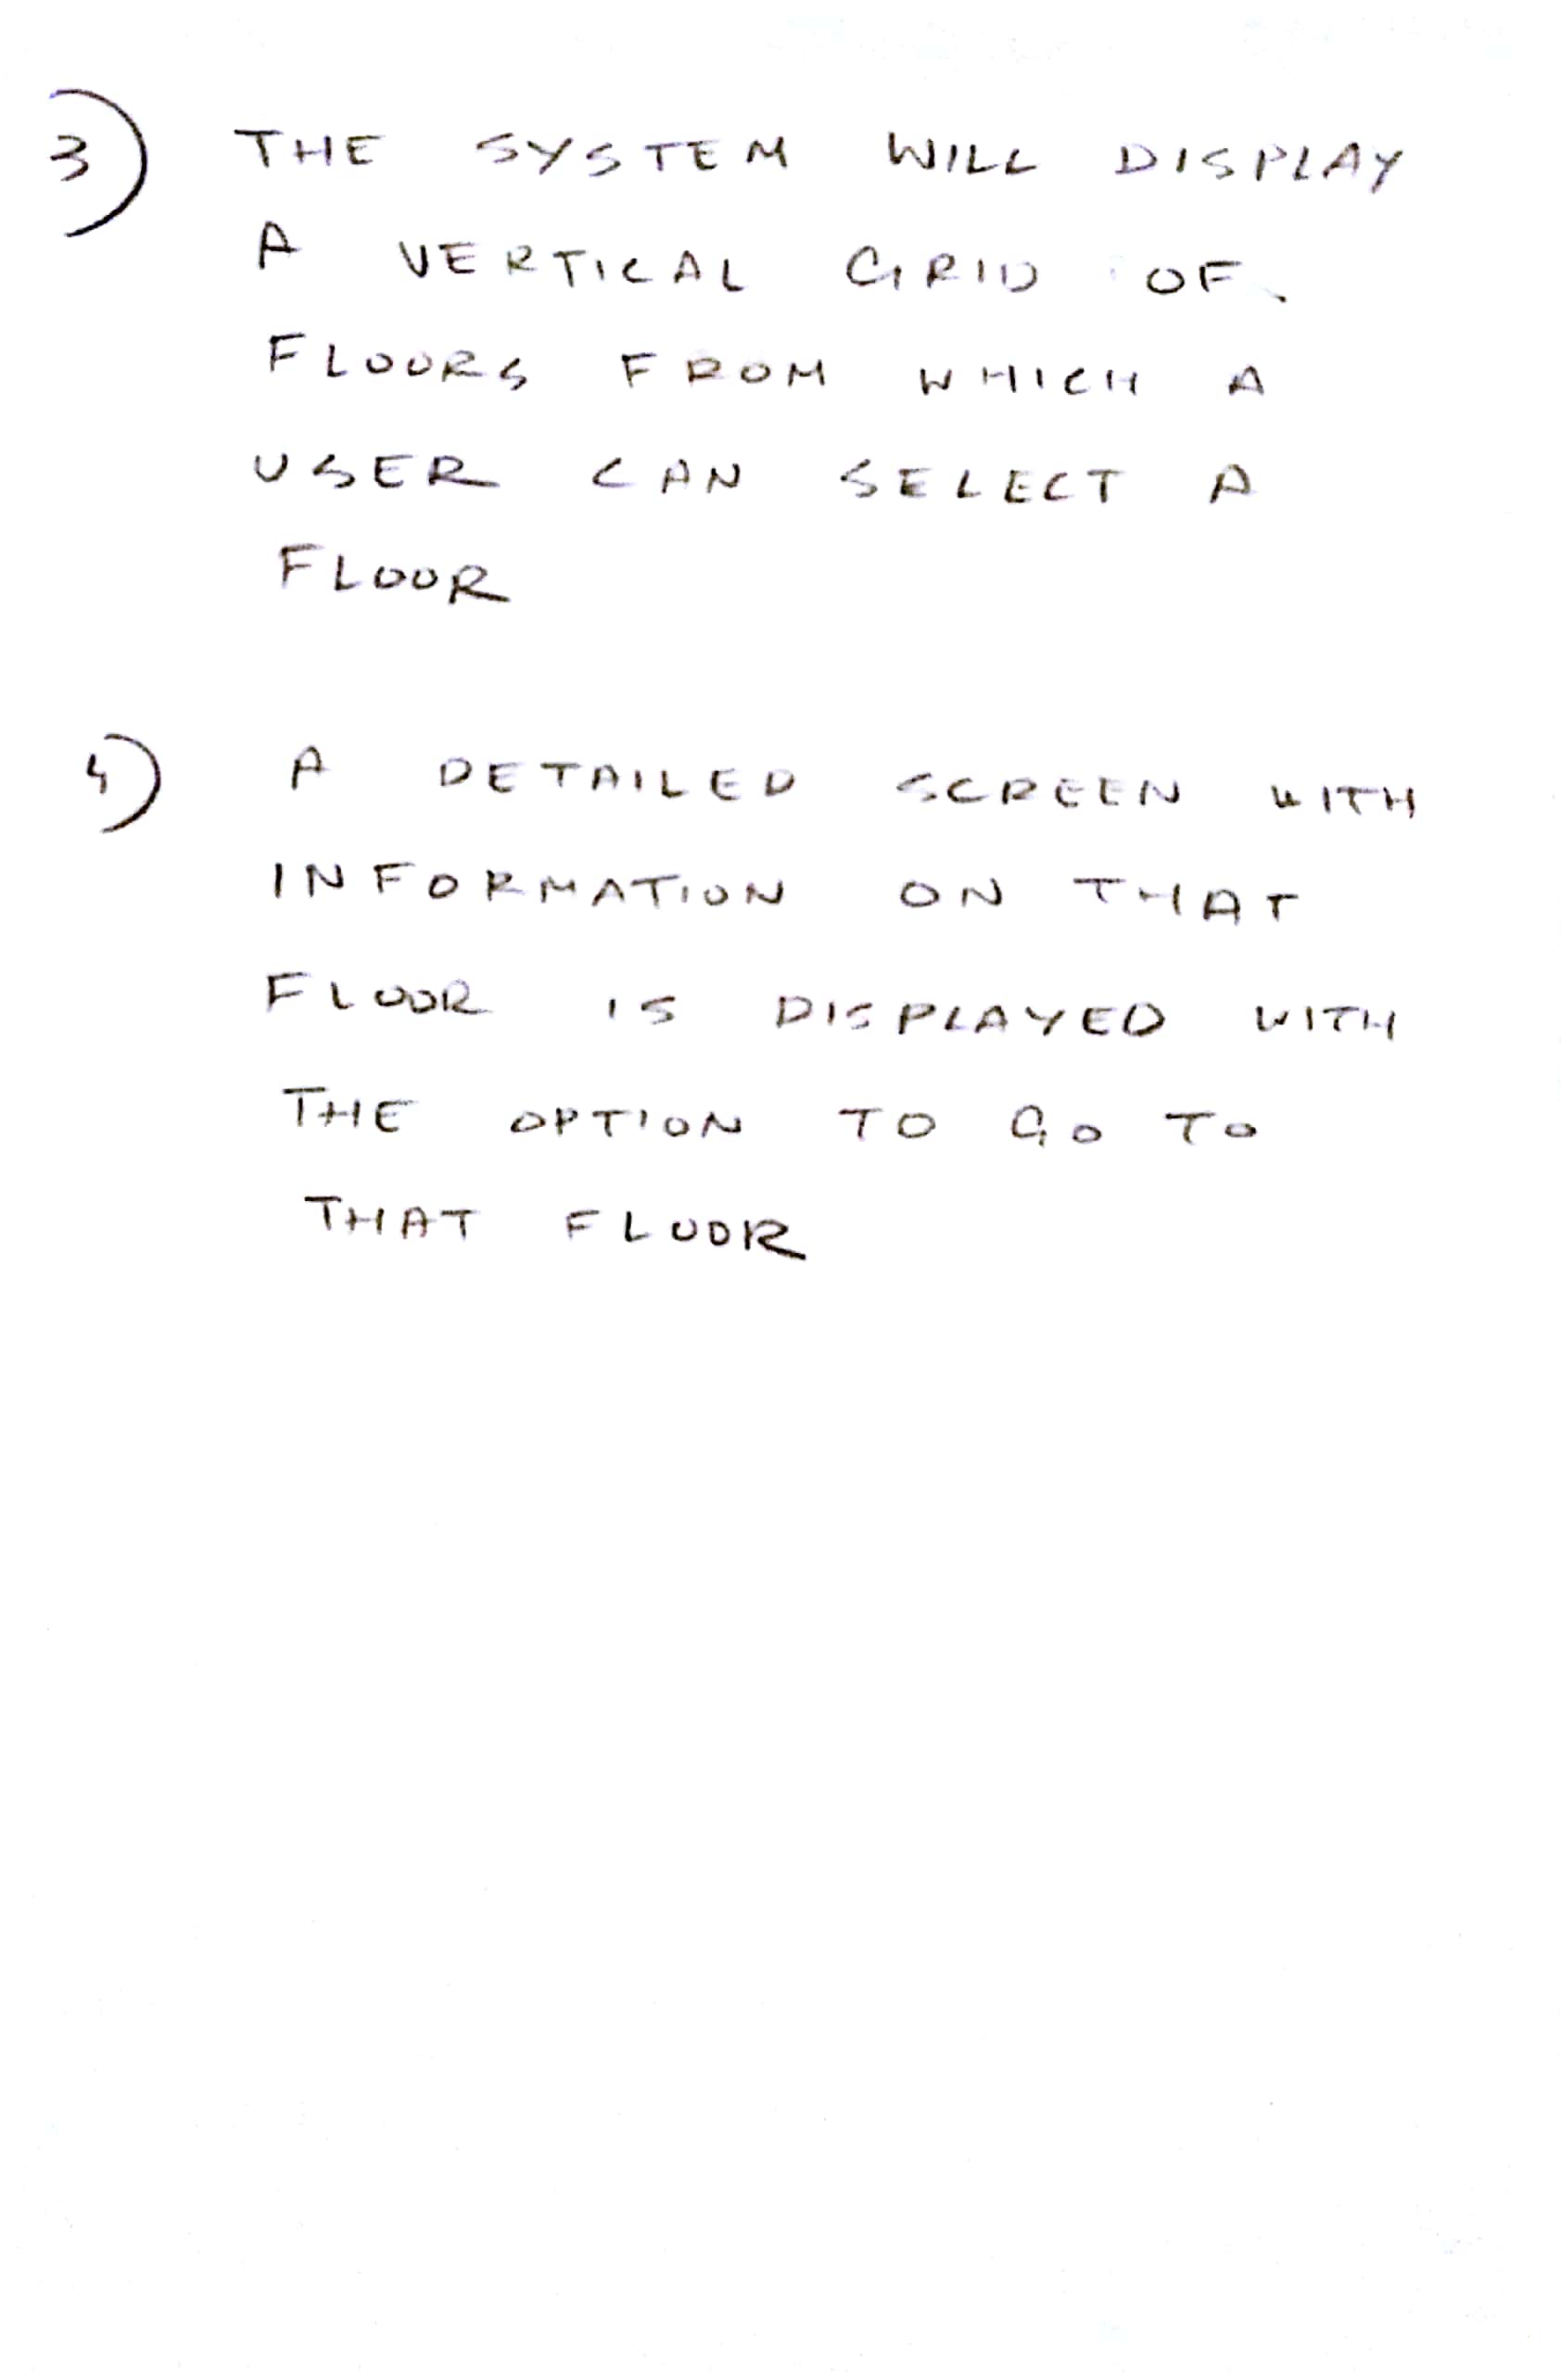 3) THE SYSTEM WILL DISPLAY
A VERTICAL GRID OF
FLOORS FROM WHICH A
USER CAN SELECT A
FLOOR
4) A DETAILED SCREEN WITH
INFORMATION ON THAT
FLOOR IS DISPLAYED WITH
THE OPTION TO GO TO
THAT FLOOR